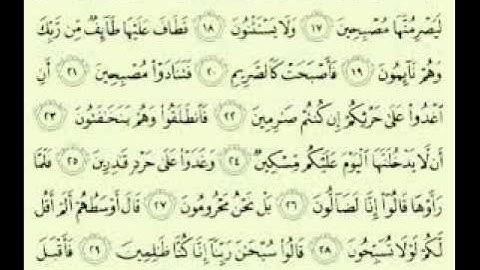 لَيَصْرِمُنَّهَا مُصْبِحِينَ ١٧ وَلَا يَسْتَثْنُونَ ١٨ فَطَافَ عَلَيْهَا طَآئِفٌ مِّن رَّبِّكَ
وَهُمْ نَآئِمُونَ ١٩ فَأَصْبَحَتْ كَالصَّرِيمِ ٢٠ فَتَنَادَوْا۟ مُصْبِحِينَ ٢١ أَنِ
ٱغْدُوا۟ عَلَىٰ حَرْثِكُمْ إِن كُنتُمْ صَٰرِمِينَ ٢٢ فَٱنطَلَقُوا۟ وَهُمْ يَتَخَٰفَتُونَ ٢٣
أَن لَّا يَدْخُلَنَّهَا ٱلْيَوْمَ عَلَيْكُم مِّسْكِينٌ ٢٤ وَغَدَوْا۟ عَلَىٰ حَرْدٍ قَٰدِرِينَ ٢٥ فَلَمَّا
رَأَوْهَا قَالُوٓا۟ إِنَّا لَضَآلُّونَ ٢٦ بَلْ نَحْنُ مَحْرُومُونَ ٢٧ قَالَ أَوْسَطُهُمْ أَلَمْ أَقُل
لَّكُمْ لَوْلَا تُسَبِّحُونَ ٢٨ قَالُوا۟ سُبْحَٰنَ رَبِّنَآ إِنَّا كُنَّا ظَٰلِمِينَ ٢٩ فَأَقْبَلَ